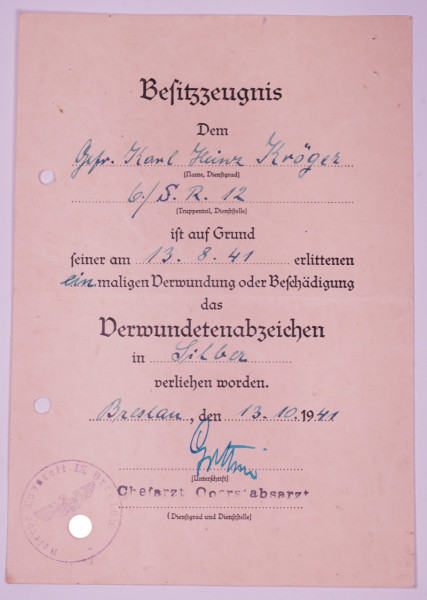 Besitzzeugnis
Dem
Gefr. Karl Heinz Kröger
(Name, Dienstgrad)
6./S. R. 12
(Truppenteil, Dienststelle)
ist auf Grund
seiner am 13. 8. 41 erlittenen
einmaligen Verwundung oder Beschädigung
das
Verwundetenabzeichen
in Silber
verliehen worden.
Breslau, den 13. 10. 1941
(Unterschrift)
Chefarzt Oberstabsarzt
(Dienstgrad und Dienststelle)